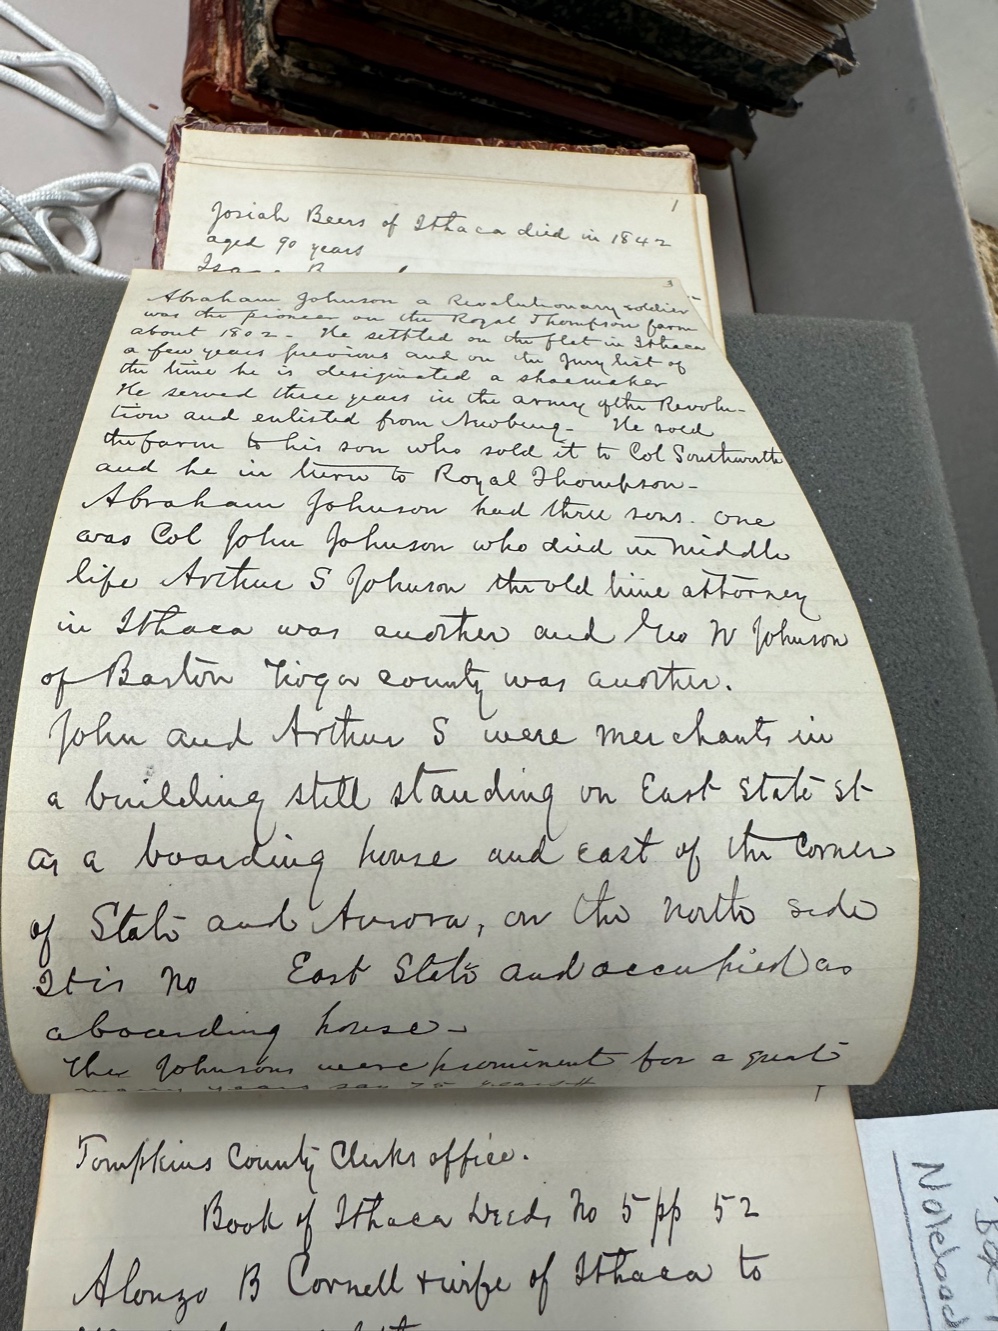 1
Josiah Beers of Ithaca died in 1842
aged 90 years
3
Abraham Johnson a Revolutionary soldier
was the pioneer on the Royal Thompson farm
about 1802 - He settled on the flat in Ithaca
a few years previous and on the Jury list of
the time he is desiginated a shoemaker
He served three years in the army of the Revolu-
tion and enlisted from Newburg - He sold
the farm to his son who sold it to Col Southworth
and he in turn to Royal Thompson -
Abraham Johnson had three sons. One
was Col John Johnson who died in middle
life Arthur S Johnson the old time attorney
in Ithaca was another and Geo W Johnson
of Barton Tioga county was another.
John and Arthur S were merchants in
a building still standing on East State St
as a boarding house and east of the corner
of State and Aurora, on the north side
It is No East State and occupied as
a boarding house -
The Johnsons were prominent for a great
many years say 75 years
Tompkins County Clerks office.
Book of Ithaca Deeds No 5 pp 52
Alonzo B Cornell + wife of Ithaca to
Box